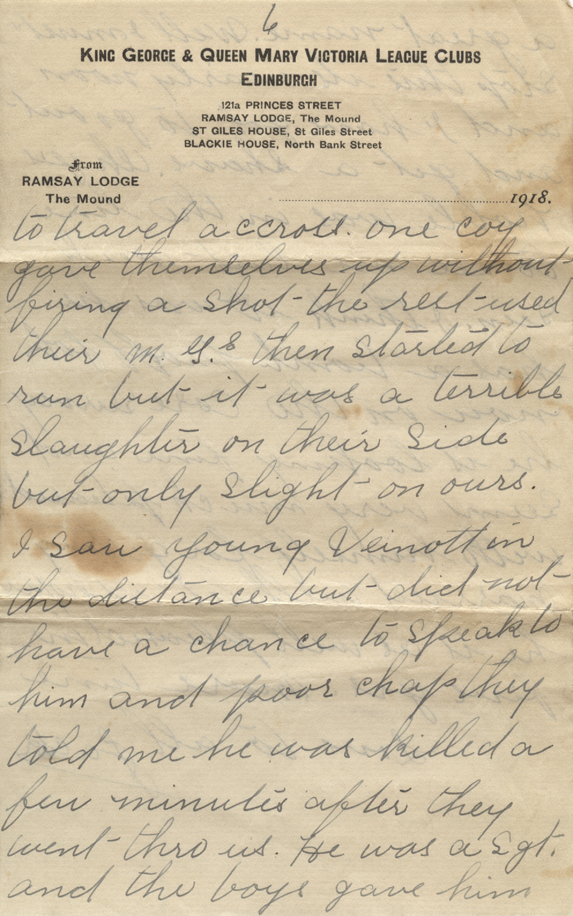 6
KING GEORGE & QUEEN MARY VICTORIA LEAGUE CLUBS
EDINBURGH
121a PRINCES STREET
RAMSAY LODGE, The Mound
ST GILES HOUSE, St Giles Street
BLACKIE HOUSE, North Bank Street
From
RAMSAY LODGE
The Mound
1918.
to travel accross. one coy
gave themselves up without
firing a shot the rest used
their m. G.s then started to
run but it was a terrible
slaughter on their side
but only slight on ours.
I saw young Veinott in
the distance but did not
have a chance to speak to
him and poor chap they
told me he was killed a
few minutes after they
went thro us. He was a Sgt.
and the boys gave him